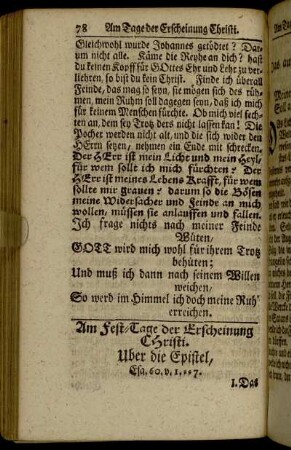 78 Am Tage der Erscheinung Christi.
Gleichwohl wurde Johannes getödtet? Dar-
um nicht alle. Käme die Reyhe an dich? hast
du keinen Kopff für GOttes Ehr und Lehr zu ver-
liehren, so bist du kein Christ. Finde ich überall
Feinde, das mag so seyn, sie mögen sich des rüh-
men, mein Ruhm soll dagegen seyn, daß ich mich
für keinem Menschen fürchte. Ob mich viel fech-
ten an, dem sey Trotz ders nicht lassen kan! Die
Pocher werden nicht alt, und die sich wider den
HErrn setzen, nehmen ein Ende mit schrecken.
Der HErr ist mein Licht und mein Heyl,
für wem sollt ich mich fürchten? Der
HErr ist meines Lebens Krafft, für wem
sollte mir grauen? darum so die Bösen
meine Widersacher und Feinde an mich
wollen, müssen sie anlauffen und fallen.
Ich frage nichts nach meiner Feinde
Wüten,
GOTT wird mich wohl für ihrem Trotz
behüten;
Und muß ich dann nach seinem Willen
weichen,
So werd im Himmel ich doch meine Ruh
erreichen.
Am Fest-Tage der Erscheinung
CHristi.
Uber die Epistel,
Esa. 60. v. 1,
1. Das